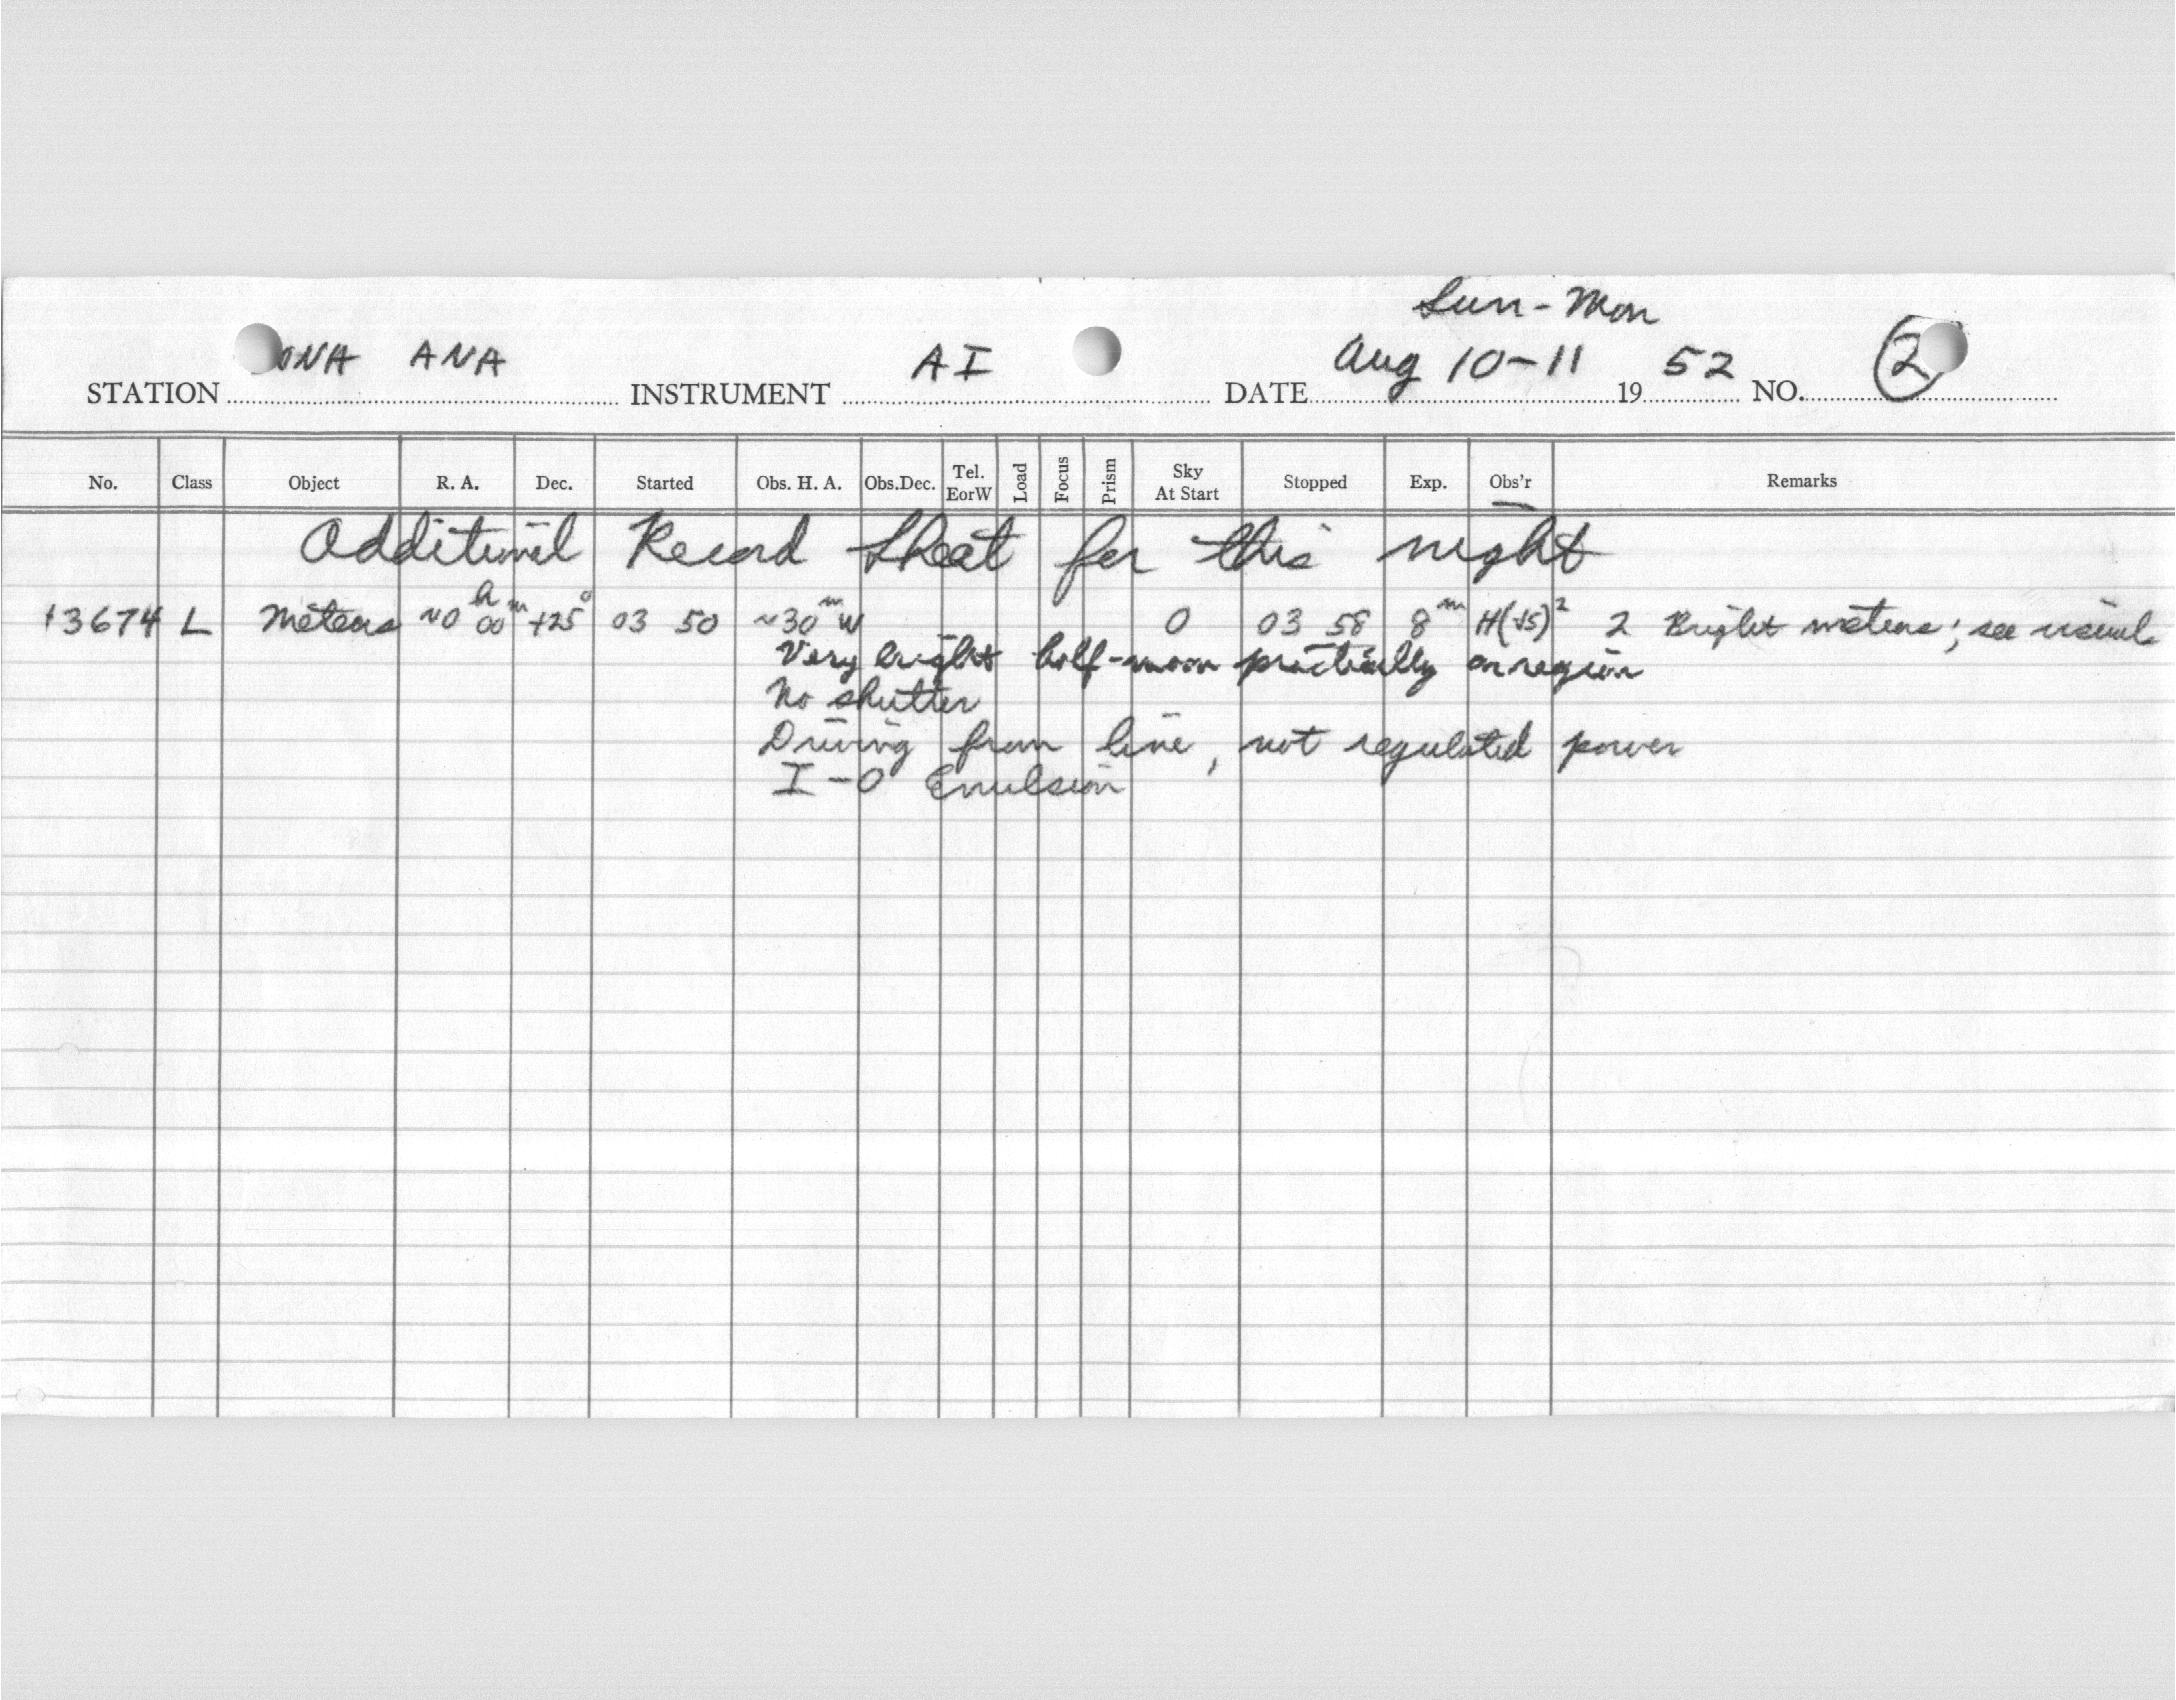 Sun-Mon
STATION ONA ANA INSTRUMENT AI DATE Aug 10-11 19 52 NO. 2
No. Class Object R. A. Dec. Started Obs. H. A. Obs.Dec. Tel. EorW Load Focus Prism Sky At Start Stopped Exp. Obs'r Remarks
Additional Record Sheet for this night
13674 L Meteors ~0h 00m +25° 03 50 ~30m W 0 03 58 8m 2 Bright meteors; see visual
Very bright half-moon practically on region
No shutter
Driving from line, not regulated power
I-O Emulsion